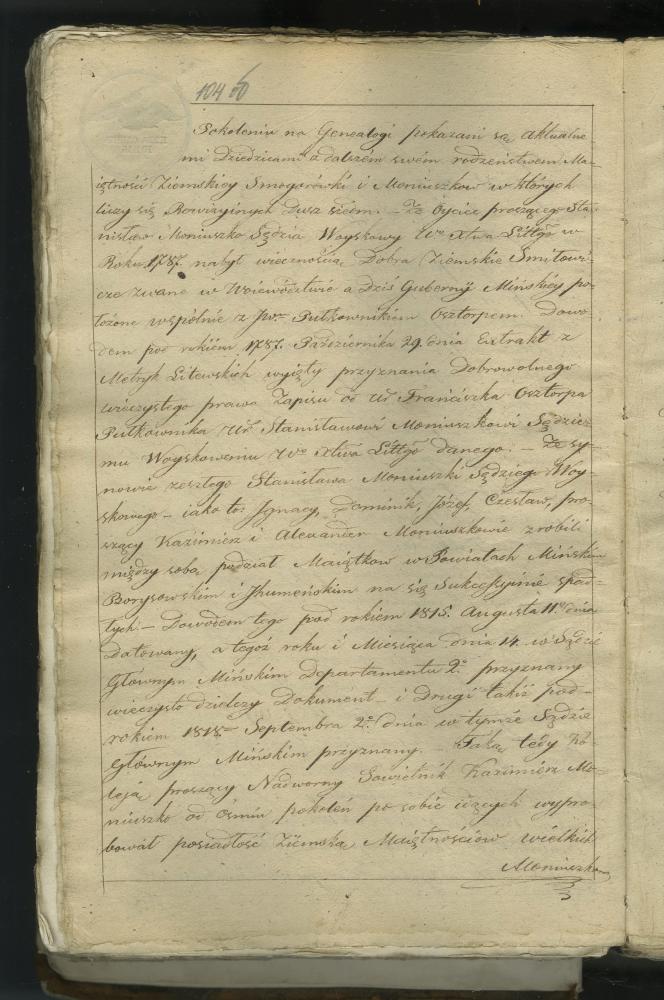 104 об
Pokoleniu na Genealogi pokazani są aktualne
mi Dziedzicami a dalszém swém rodzeństwem Ma-
iętność Ziemskiey Smogorówki i Moniuszkow w których
liczy się Rewizyinych Dusz siedm. — Że Oyciec proszącego Sta-
nisław Moniuszko Sędzia Woyskowy Wo Xtwa Littgo w
Roku 1787. nabył wiecznością Dobra Ziemskie Śmiłowi-
cze zwane w Woiewództwie a Dziś Gubernij Mińskiey po-
łożone wspólnie z Jwm Pułkownikiem Osztorpem. Dowo-
dem pod rokiem 1787. Pazdziernika 29. dnia Extrakt z
Metryk Litewskich wyięty przyznania Dobrowolnego
wieczystego prawa Zapisu od Ur Franciszka Osztorpa
Pułkownika Ur Stanisławowi Moniuszkowi Sędzie-
mu Woyskowemu Wo Xtwa Littgo danego. — Że sy-
nowie zeszłego Stanisława Moniuszki Sędziego Woy-
skowego — iako to: Ignacy, Dominik, Józef, Czesław, pro-
szący Kazimierz i Alexander Moniuszkowie zrobili
między sobą podział Maiątkow w Powiatach Mińskim
Borysowskim i Jhumeńskim na się Sukcessyinie spad-
łych. — Dowodem tego pod rokiem 1815. Augusta 11. dnia
Datowany, a tegoż roku i Miesiąca dnia 14. w Sądzie
Głównym Mińskim Departamentu 2o przyznany
wieczysto dzielczy Dokument — i Drugi takiż pod
rokiem 1818. Septembra 2o dnia w tymże Sądzie
Głównym Mińskim przyznany. — Taką tedy Ko-
leją proszący Nadworny Sowietnik Kazimierz Mo-
niuszko od ośmiu pokoleń po sobie idących wypro-
bował posiadłość Ziemską Maiętnościow wielkich
Moniuszko